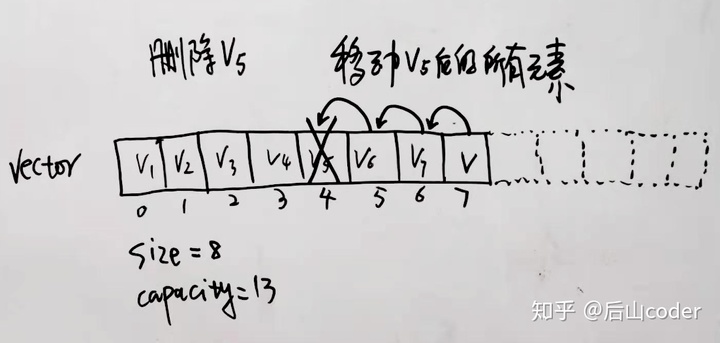 删除V5 移动V5后的所有元素
vector V1 V2 V3 V4 V5 V6 V7 V
0 1 2 3 4 5 6 7
size=8
capacity=13
知乎 @后山coder